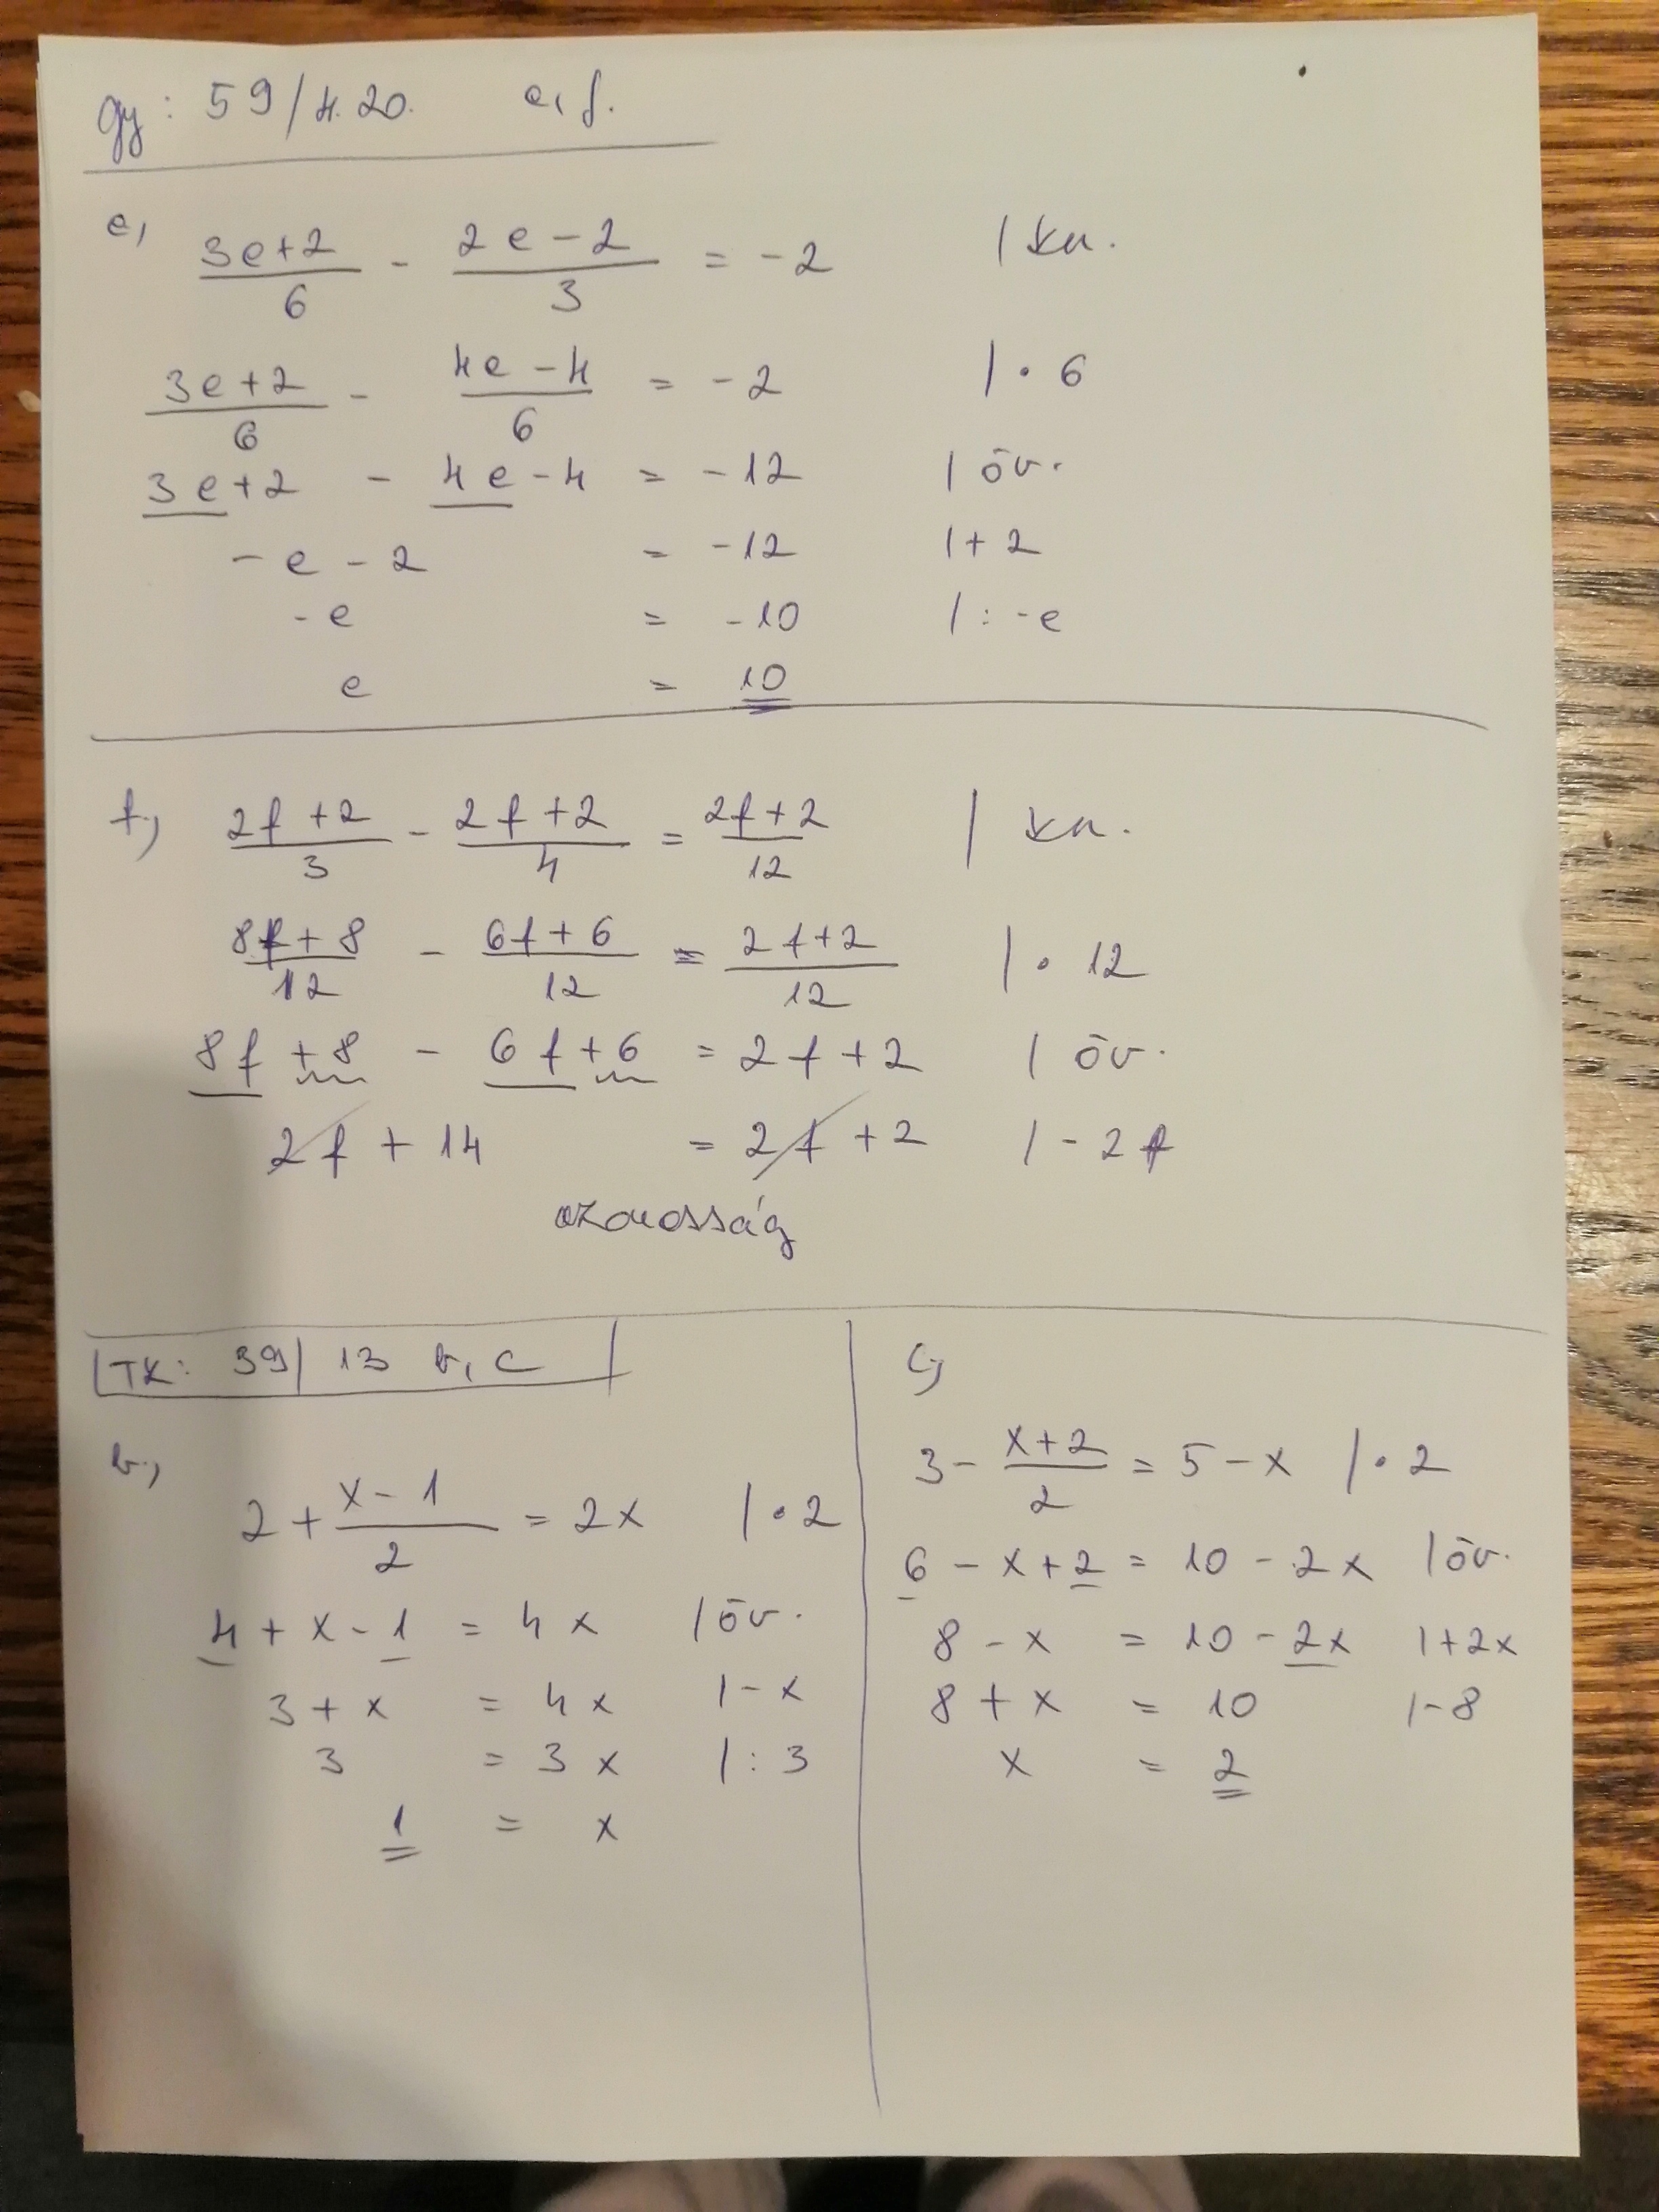 gy: 59/4.20. e, f.
e, (3e+2)/6 - (2e-2)/3 = -2 | kn.
(3e+2)/6 - (4e-4)/6 = -2 | · 6
3e+2 - 4e-4 = -12 | öv.
-e - 2 = -12 | +2
-e = -10 | : -e
e = 10
f, (2f+2)/3 - (2f+2)/4 = (2f+2)/12 | kn.
(8f+8)/12 - (6f+6)/12 = (2f+2)/12 | · 12
8f+8 - 6f+6 = 2f+2 | öv.
2f + 14 = 2f + 2 | - 2f
azonosság
TK: 39/13 b, c
b, 2 + (x-1)/2 = 2x | · 2
4 + x - 1 = 4x | öv.
3 + x = 4x | - x
3 = 3x | : 3
1 = x
c,
3 - (x+2)/2 = 5 - x | · 2
6 - x + 2 = 10 - 2x | öv.
8 - x = 10 - 2x | +2x
8 + x = 10 | -8
x = 2